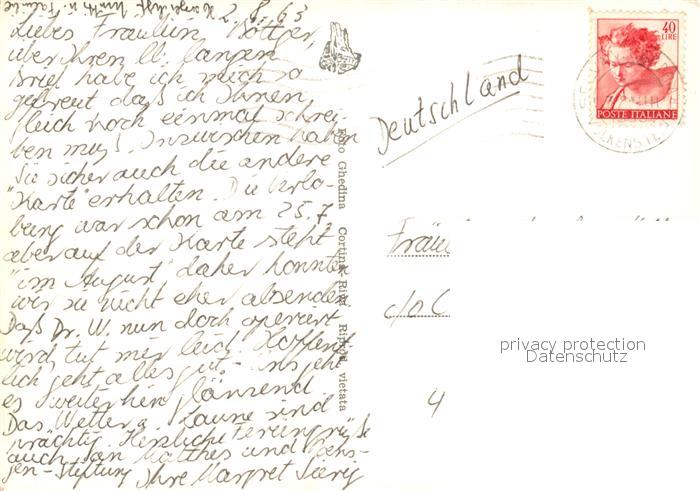 2. 8. 63
Liebes Fräulein Böttger,
über Ihren ll. langen
Brief habe ich mich so
gefreut daß ich Ihnen
gleich noch einmal schrei-
ben muß! Inzwischen haben
Sie sicher auch die andere
"Karte" erhalten. Die Verlo-
bung war schon am 25.7,
aber auf der Karte steht
"im August" daher konnten
wir sie nicht eher absenden.
Daß Dr. W. nun doch operiert
wird, tut mir leid. Hoffent-
lich geht alles gut. - Uns geht
es weiterhin glänzend
Das Wetter u. Laune sind
prächtig. Herzliche Feriengrüße
auch an Matthes und
jen-Stiftung Ihre Margret
Foto Ghedina Cortina Ris. Riprod. vietata
Deutschland
40
LIRE
POSTE ITALIANE
Fräu
c/o C
4
privacy protection
Datenschutz